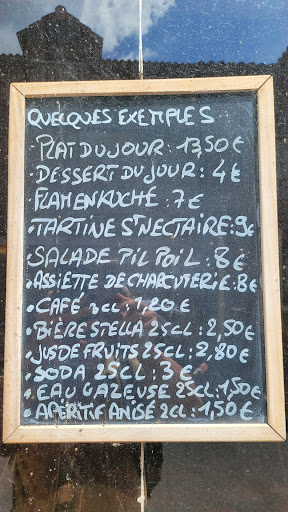 QUELQUES EXEMPLES :
• PLAT DU JOUR : 13,50€
• DESSERT DU JOUR : 4€
• FLAMENKUCHE : 7€
• TARTINE ST NECTAIRE : 9€
• SALADE PIL POIL : 8€
• ASSIETTE DE CHARCUTERIE : 8€
• CAFÉ 3CL : 1,20€
• BIÈRE STELLA 25CL : 2,50€
• JUS DE FRUITS 25CL : 2,80€
• SODA 25CL : 3€
• EAU GAZEUSE 25CL : 1,50€
• APÉRITIF ANISÉ 2CL : 1,50€